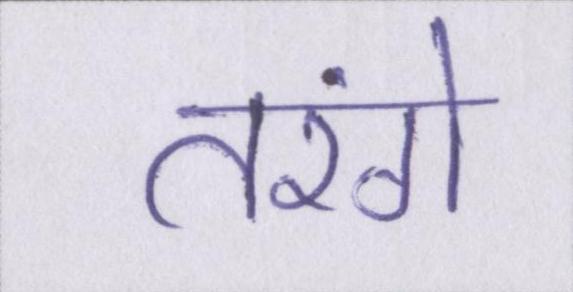 तरंगे